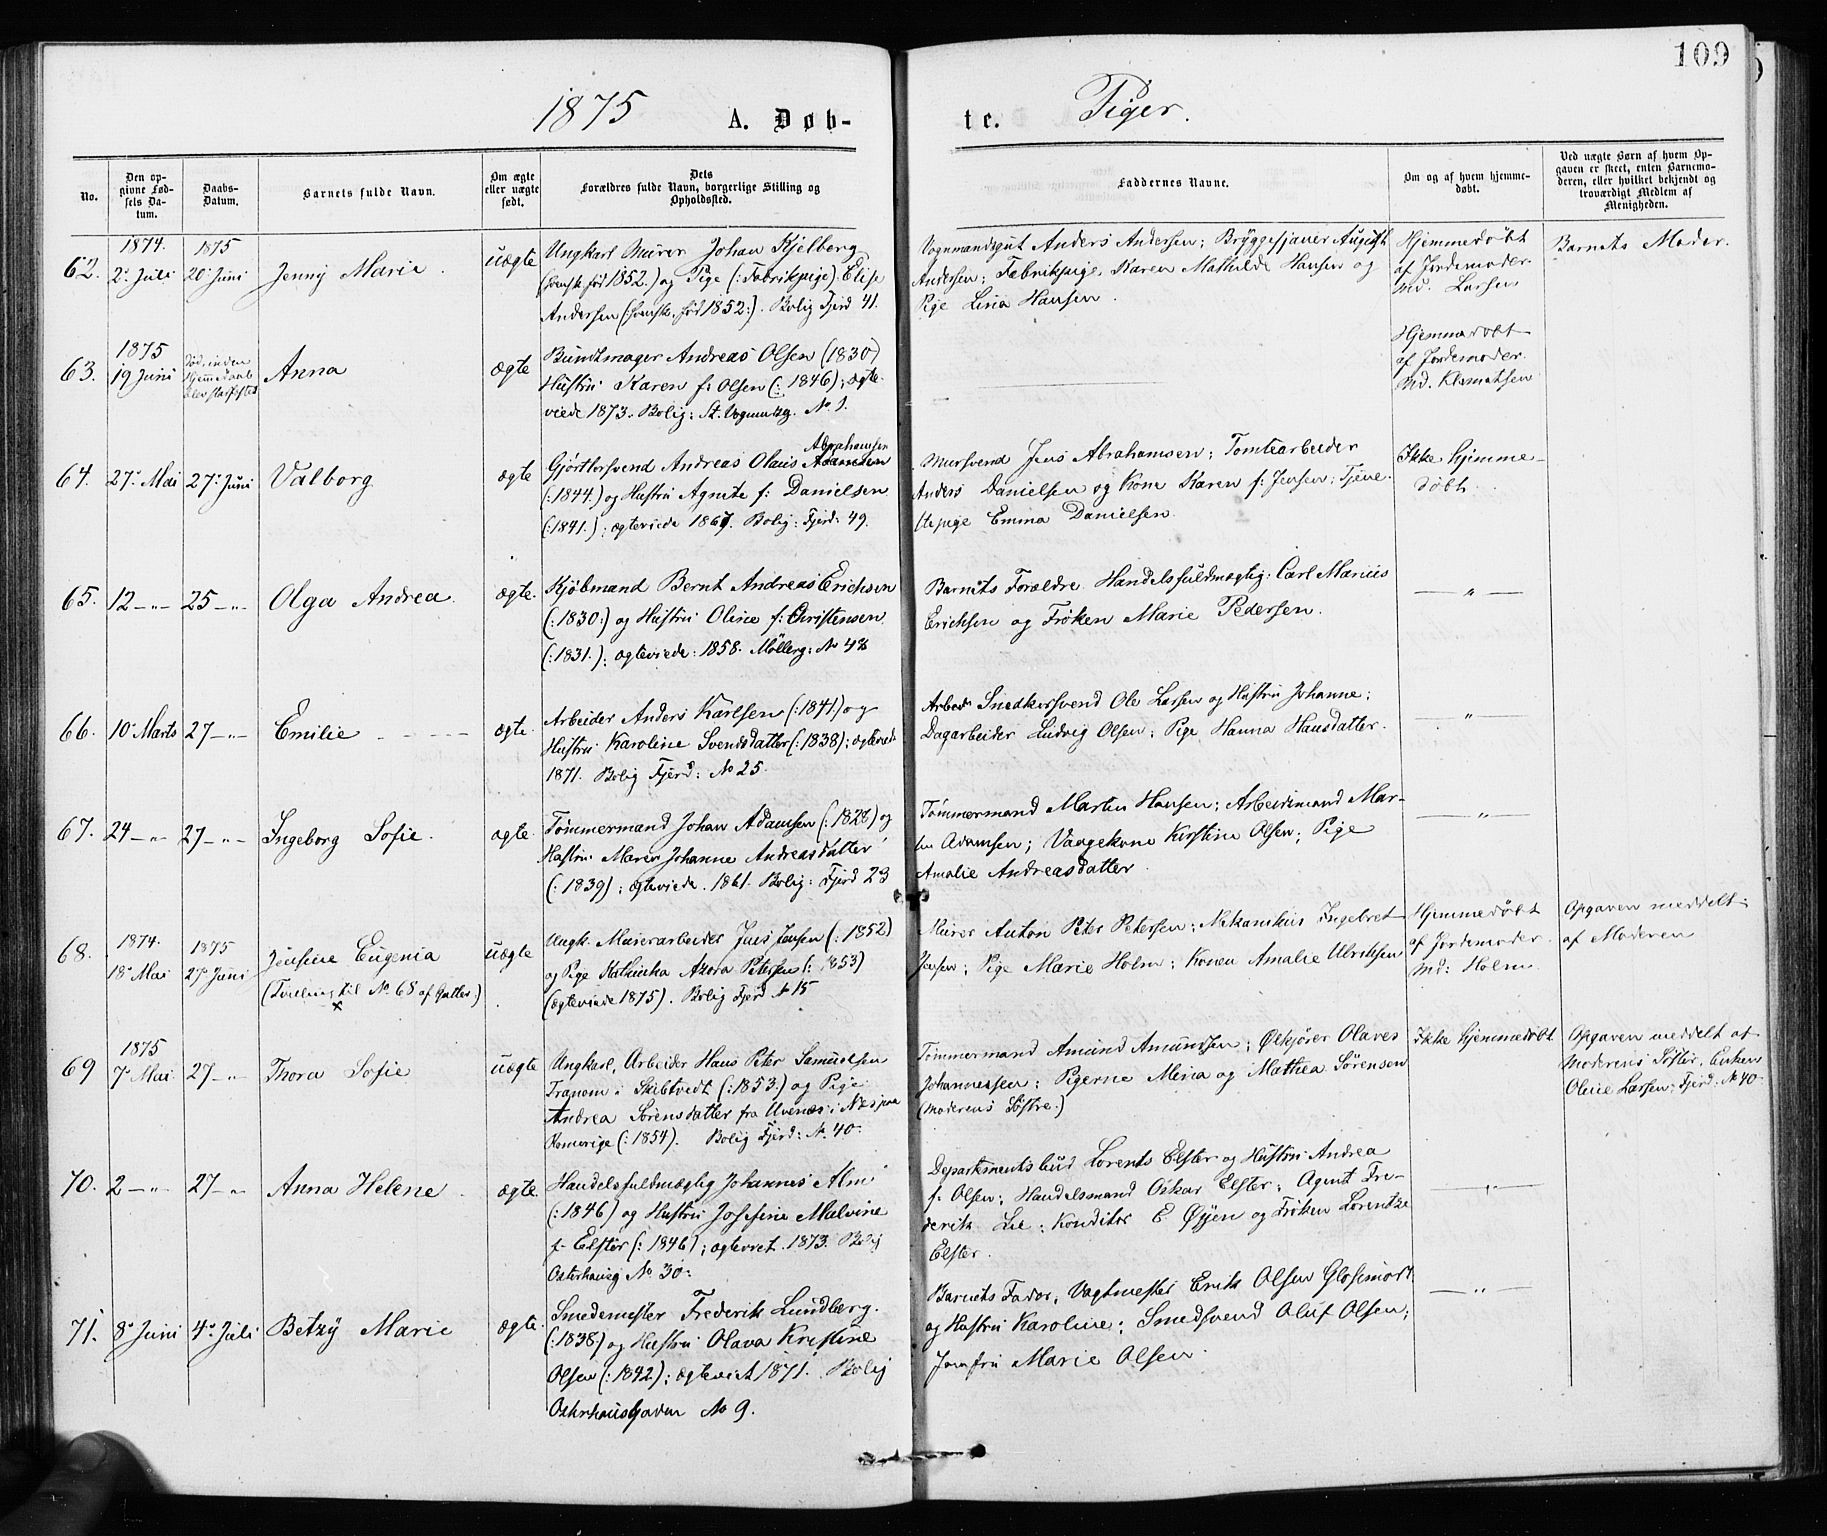 109
1875 A. Døb-
te. Piger.
No.
Den op-
givne Fød-
sels Da-
tum.
Daabs-
Datum.
Barnets fulde Navn.
Om ægte
eller uægte
født.
Dets
Forældres fulde Navn, borgerlige Stilling og
Opholdssted.
Faddernes Navne.
Om og af hvem hjemme-
døbt.
Ved uægte Børn af hvem Op-
gaven er skeet, enten Barnemo-
deren, eller hvilket bekjendt og
troværdigt Medlem af
Menigheden.
62.
1874.
2. Juli
1875
20 Juni
Jenny Marie
uægte
Ungkarl Murer Johan Kjelberg
(svensk født 1852.) og Pige (:Fabrikpige) Elise
Andersen (:svensk, født 1852:). Bolig Fjerd 41.
Vognmandsgut Anders Andersen; Bryggesjauer August
Andersen; Fabrikpige Karen Mathilde Hansen og
Pige Lina Hansen.
Hjemmedøbt
af Jordemoder
Md. Larsen
Barnets Moder.
63.
1875
19 Juni
Død, inden
Hjemmedaab
blev stadfæstet
Anna
ægte
Bundtmager Andreas Olsen (1830)
Hustru Karen f: Olsen (:1846); ægte-
viede 1873. Bolig: St. Vognmdsg. No 1.
Hjemmedøbt
af Jordemoder
Md. Klemetsen
64.
27. Mai
27. Juni
Valborg
ægte
Abrahamsen
Gjørtlersvend Andreas Olaus Adamsen
(:1844.) og Hustru Agnete f: Danielsen
(:1841.); ægteviede 1867. Bolig: Fjerd: 49.
Mursvend Jens Abrahamsen; Tomtearbeider
Anders Danielsen og Kone Karen f: Jensen; Tjene-
stepige Emma Danielsen.
Ikke hjemme-
døbt.
65.
12 -"-
25 -"-
Olga Andrea.
ægte.
Kjøbmand Bernt Andreas Erichsen
(:1830:) og Hustru Oline f: Christensen
(:1831.); ægteviede: 1858. Møllerg: No 48
Barnets Forældre. Handelsfuldmægtig: Carl Marius
Erichsen og Frøken Marie Pedersen.
-"-
66.
10. Marts
27 -"-
Emilie
ægte.
Arbeider Anders Karlsen (:1841.) og
Hustru Karoline Svendsdatter (:1838); ægteviede
1871. Bolig Fjerd: No 25.
Snedkersvend Ole Larsen og Hustru Johanne;
Dagarbeider Ludvig Olsen; Pige Hanna Hansdatter.
-"-
67.
24 -"-
27 -"-
Ingeborg Sofie.
ægte.
Tømmermand Johan Adamsen (:1828) og
Hustru Maren Johanne Andreasdatter
(:1839); ægteviede. 1861. Bolig: Fjerd 23
Tømmermand Martin Hansen; Arbeidsmand Mar-
tin Adamsen; Vaagekone Kirstine Olsen; Pige
Amalie Andreasdatter.
-"-
68.
1874.
18. Mai
1875
27. Juni
Jensine Eugenia
(Tvilling til No. 68 af Gutter.)
x
uægte
Ungk. Murerarbeider Jens Jensen (:1852)
og Pige Kathinka Azora Petersen (:1853)
(ægteviede 1875). Bolig Fjerd No 15
Murer Anton Peter Petersen; Mekanikus Ingebret
Jensen; Pige Marie Holm; Konen Amalie Ulriksen
Hjemmedøbt
af Jordemoder
Md: Holm
Opgaven meddelt
af Moderen
69
1875
7. Mai
27 -"-
Thora Sofie
uægte
Ungkarl, Arbeider Hans Peter Samuelsen
Tranem i Skibtvedt (:1853.) og Pige
Andrea Sørensdatter fra Uvenæs i Næsjaa
(:1854). Bolig Fjerd: No. 40.
Tømmermand Amund Amundsen; Ølkjører Olaves
Johannessen; Pigerne Mina og Mathea Sørensen
(Moderens Søstre.)
Ikke hjemmedøbt
Opgaven meddelt af
Moderens Søster, Enken
Oline Larsen; Fjerd: No 40.
70.
2 -"-
27 -"-
Anna Helene
ægte.
Handelsfuldmægtig Johannes Alm
(:1846) og Hustru Josefine Malvine
f. Elster (:1846); ægteviet. 1873. Bolig
Osterhausg No 30.
Departementsbud Lorents Elster og Hustru Andrea
f. Olsen; Handelsmand Oskar Elster; Agent Fre-
derik Lie; Konditor E. Øyen og Frøken Lorentze
Elster.
-"-
71.
8. Juni
4. Juli
Betzy Marie
ægte.
Smedemester Frederik Lundberg.
(:1838) og Hustru Olava Kristine
Olsen (:1842); ægteviet 1871. Bolig
Osterhausgaden No 9.
Barnets Fader, Vagtmester Erik Olsen Glosimodt
og Hustru Karoline; Smedsvend Oluf Olsen;
Jomfru Marie Olsen.
-"-